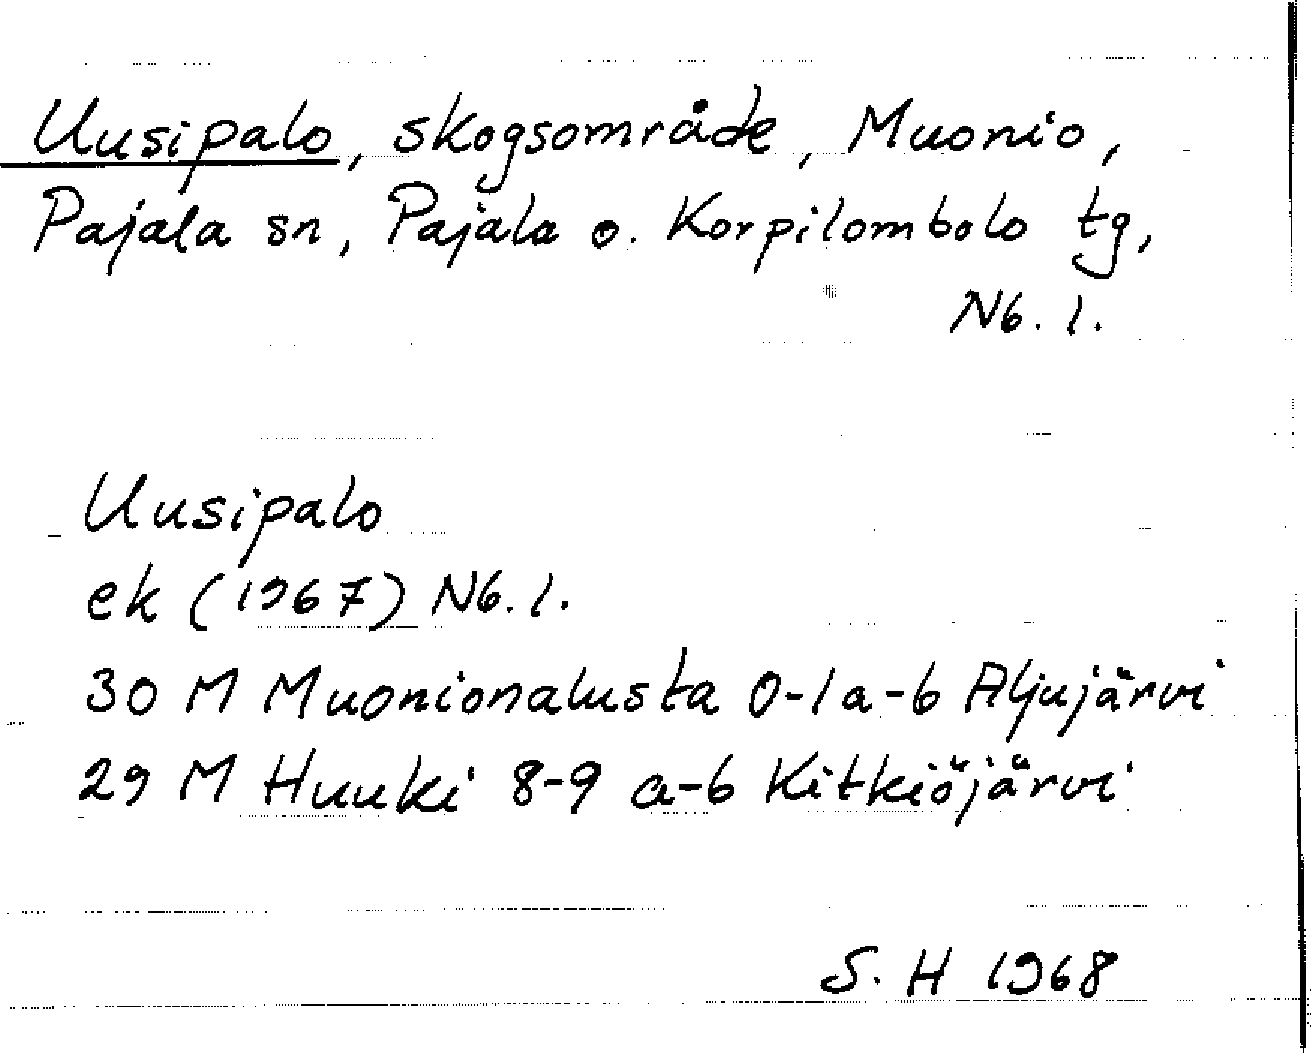 Uusipalo, skogsområde, Muonio,
Pajala sn, Pajala o. Korpilombolo tg,
Nb. l.
Uusipalo
ek (1967) Nb. l.
30 M Muonionalusta 0-1 a-b Aljujärvi
29 M Huuki 8-9 a-b Kitkiöjärvi
S. H 1968